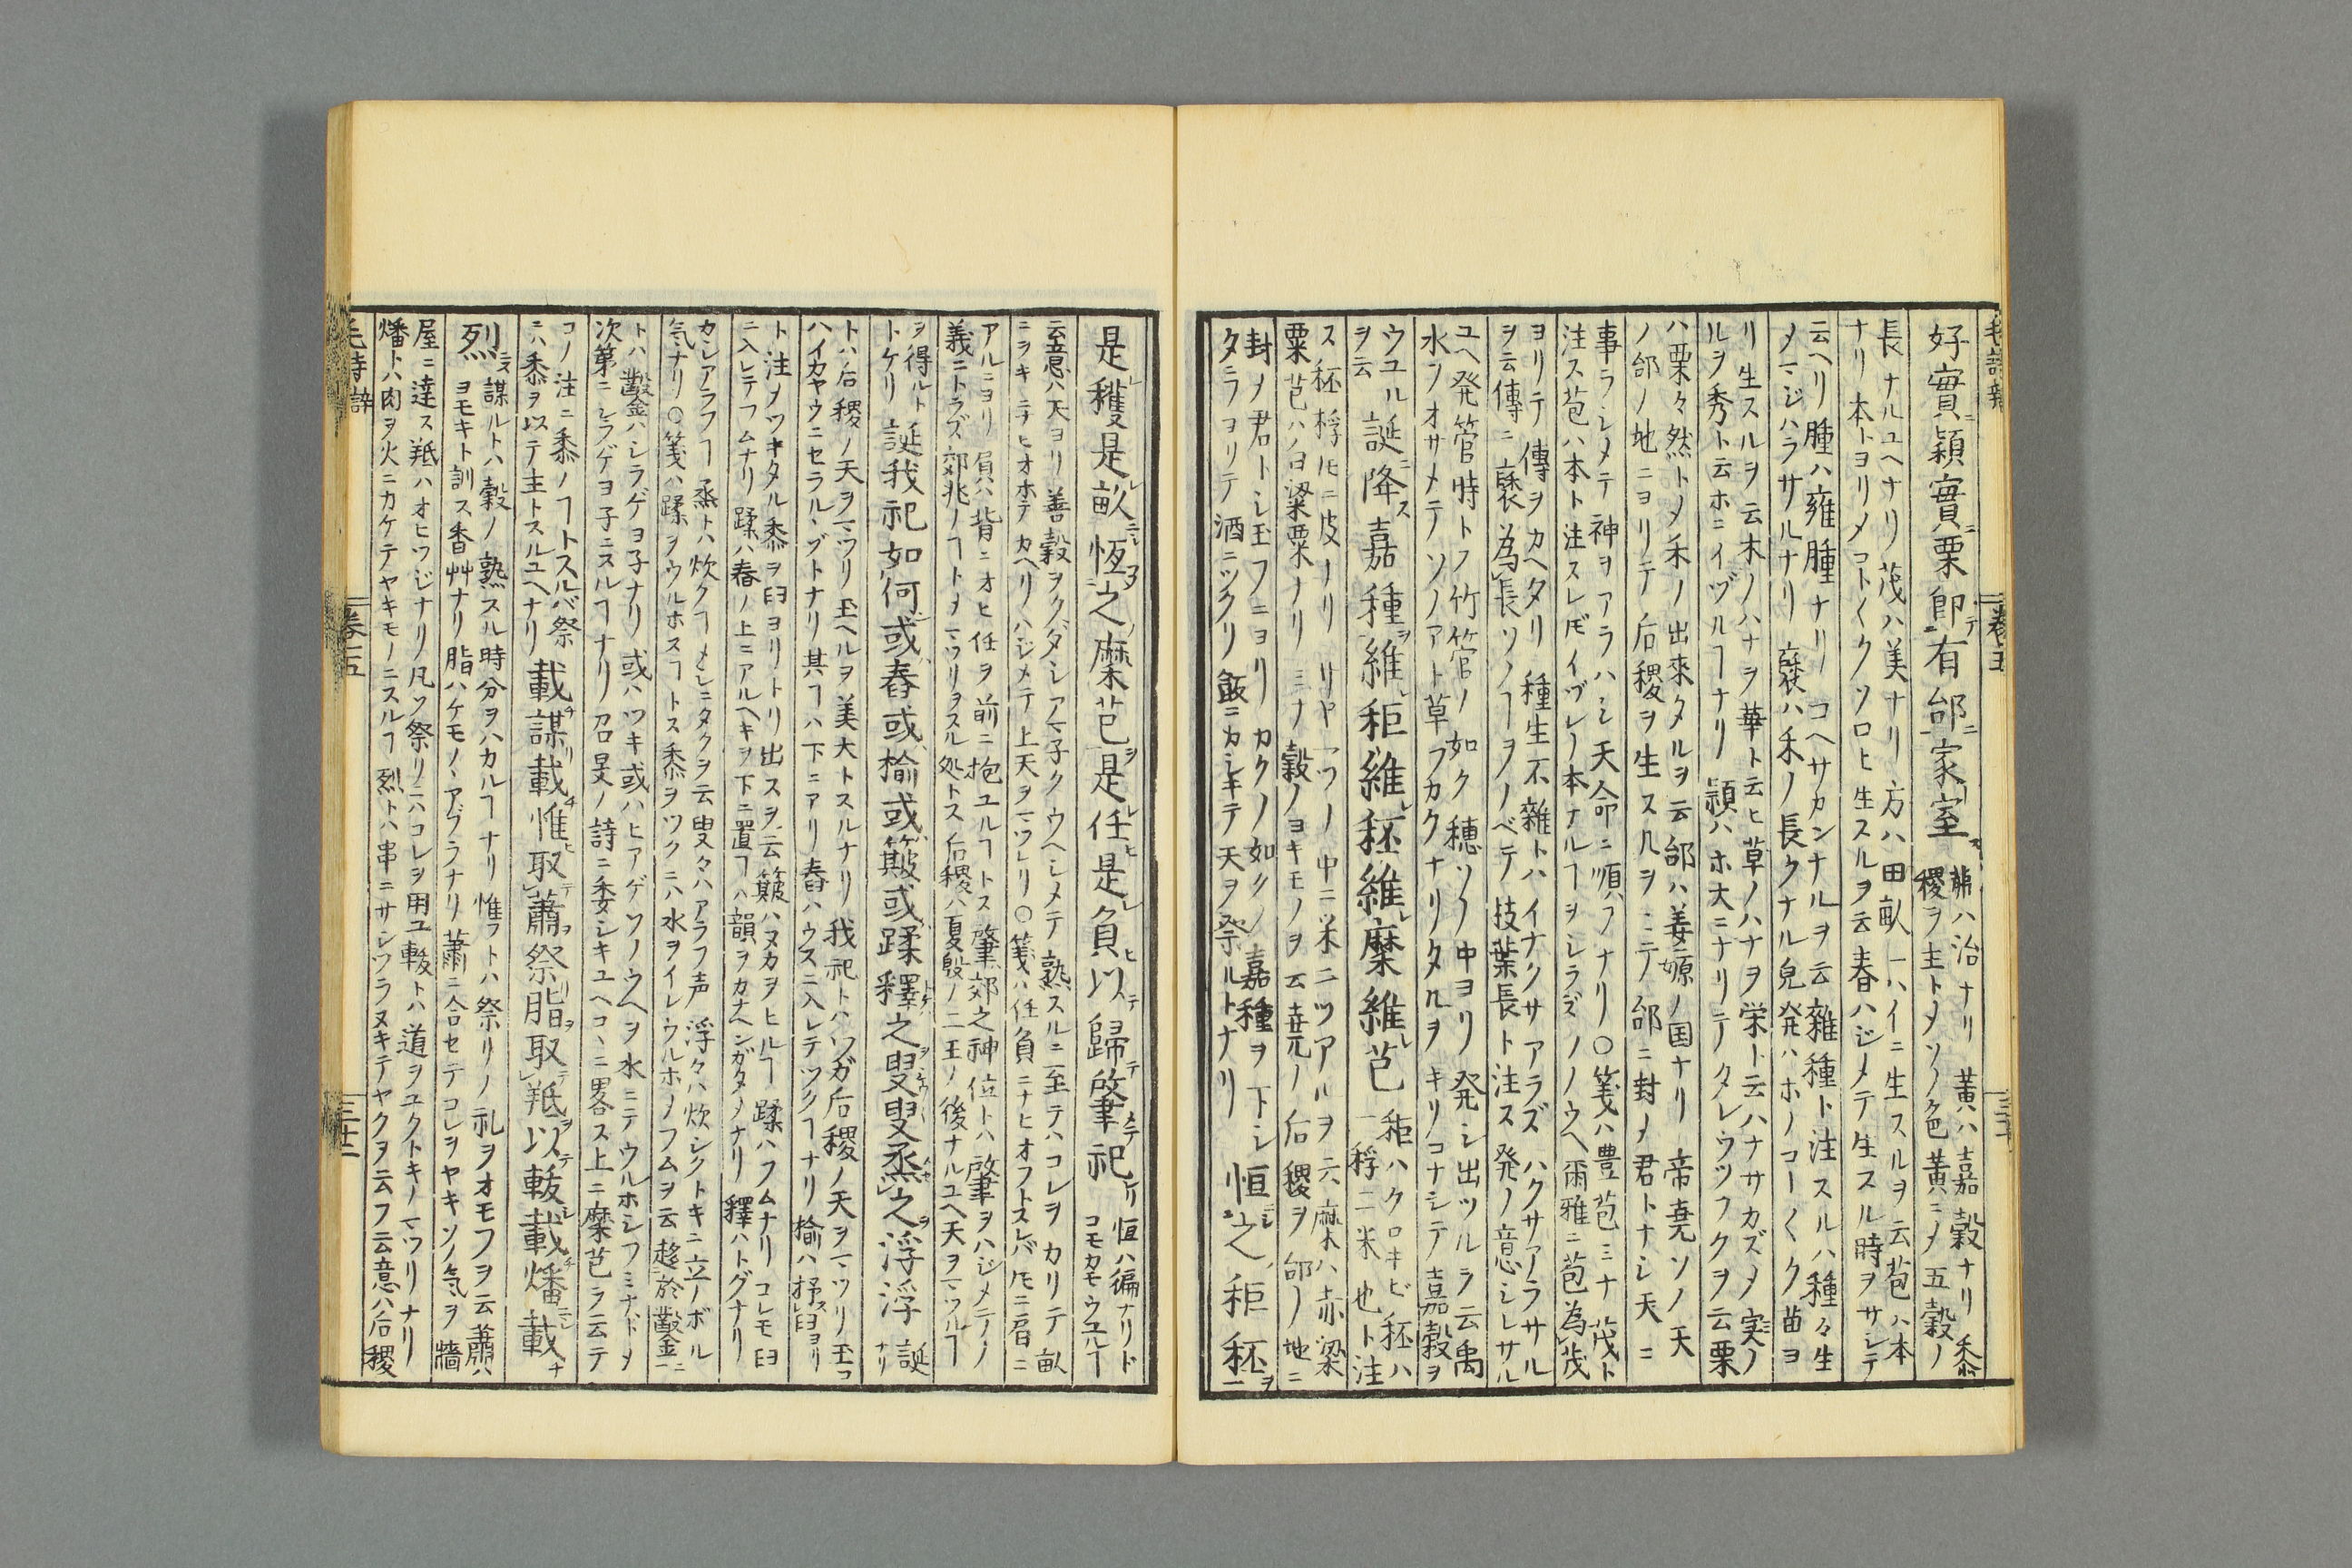 好實穎實栗即有邰家室
茀ハ治ナリ黄ハ嘉穀ナリ黍
稷ヲ主トメソノ色黄ニメ五穀ノ
長ナルユヘナリ茂ハ美ナリ方ハ田畝一ハイニ生スルヲ云苞ハ本
ナリ本トヨリメコト〱クソロヒ生スルヲ云春ハジメテ生スル時ヲサシテ
云ヘリ腫ハ雍腫ナリコヘサカンナルヲ云雜種ト注スルハ種々生
メマジハラサルナリ襃ハ禾ノ長クナル皃発ハホノコー〱ク苗ヨ
リ生スルヲ云木ノハナヲ華ト云ヒ草ノハナヲ栄ト云ハナサカズメ実ノ
ルヲ秀ト云ホニイヅルヿナリ穎ハホ大ニナリテタレウツフクヲ云栗
ハ栗々然トメ禾ノ出來タルヲ云邰ハ姜嫄ノ国ナリ帝尭ソノ天
ノ邰ノ地ニヨリテ后稷ヲ生ス几ヲミテ邰ニ封メ君トナシ天ニ
事ラシメテ神ヲアラハシ天命ニ順フナリ○箋ハ豊苞ミナ茂ト
注ス苞ハ本ト注スレ𪜈イヅレノ本ナルヿヲシラズノノウヘ爾雅ニ苞為茂
ヨリテ傳ヲカヘタリ種生不雜トハイナクサアラズハクサアラサル
ヲ云傳ニ襃為長ソノヿヲノベテ技葉長ト注ス発ノ意シレサル
ユヘ発管時トフ竹管ノ如ク穂ソノ中ヨリ発シ出ツルヲ云禹
水ヲオサメテソノアト草フカクナリタルヲキリコナシテ嘉穀ヲ
ウユル
ヲ云
誕降嘉種維秬維秠維穈維芑
秬ハクロキビ秠ハ
一稃二米也ト注
ス秠稃𪜈ニ皮ノリリヤ一ツノ中ニ米ニツアルヲ云穈ハ赤粱
粟芑ハ白粱粟ナリミナ穀ノヨキモノヲ云尭ノ后稷ヲ邰ノ地ニ
封ノ君トシ玉フニヨリカクノ如クノ嘉種ヲ下シ
タラヨリテ酒ニツクリ飯ニカシキテ天ヲ祭ルトナリ
恒之秬秠
是穫是畝恆之穈芑是任是負以歸肇祀
恒ハ徧ナリト
コモカモウユルヿ
云意ハ天ヨリ善穀ヲクダシアマ子クウヘシメテ熟スルニ至テハコレヲカリテ畝
ニヲキニナヒオホテカヘリハジメテ上天ヲマツレリ○箋ハ任負ニナヒオフトスレバ𪜈ニ酓ニ
アルニヨリ負ハ背ニオヒ任ヲ前ニ抱ユルヿトス肇郊之神位トハ肇ヲハジメテノ
義ニトラズ郊兆ノヿトヲマツリヲスル処トス后稷ハ夏殷ノ二王ノ後ナルユヘ天ヲマツルヿ
ヲ得ルト
トケリ
誕我祀如何或舂或揄或簸或蹂釋之叟叟烝之浮浮
誕
ナリ
トハ后稷ノ天ヲマツリ玉ヘルヲ美大トスルナリ我祀トハワガ后稷ノ天ヲマツリ玉コ
ハイカヤウニセラルヽゾトナリ其ヿハ下ニアリ舂ハウスニ入レテツクヿナリ揄ハ抒臼ヨリ
ト注ノツキタル黍ヲ臼ヨリトリ出スヲ云簸ハヌカヲヒルヿ蹂ハフムナリコレモ臼
ニ入レテフムナリ蹂ハ舂ノ上ニアルヘキヲ下ニ置ヿハ韻ヲカナヘンガタメナリ釋ハトグナリ
カシアラフヿ烝トハ炊クヿメシニタクヲ云叟々ハアラフ声浮々ハ炊シクトキニ立ノボル
気ナリ○箋ハ蹂ヲウルホスヿトス黍ヲツクニハ水ヲイレウルホノフムヲ云趍於鑿ニ
トハ鑿ハシラゲヨ子ナリ或ハツキ或ハヒアゲソノウヘヲ水ニテウルホシフミナドメ
次第ニシラゲヨ子ニスルヿナリ召旻ノ詩ニ委シキユヘコヽニ畧ス上ニ穈芑ヲ云テ
コノ注ニ黍ノヿトスルバ祭
ニハ黍ヲ以テ主トスルユヘナリ
載謀載惟取蕭祭脂取羝以軷載燔載
烈
謀ルトハ穀ノ熟スル時分ヲハカルヿナリ惟フトハ祭リノ礼ヲオモフヲ云蕭ハ
ヨモキト訓ス香艸ナリ脂ハケモノヽアブラナリ蕭ニ合セテコレヲヤキソノ気ヲ牆
屋ニ達ス羝ハオヒツジナリ凡ソ祭リニハコレヲ用ユ軷トハ道ヲユクトキノマツリナリ
燔トハ肉ヲ火ニカケテヤキモノニスルヿ烈トハ串ニサシツラヌキテヤクヲ云フ云意ハ后稷
毛詩辞
卷五